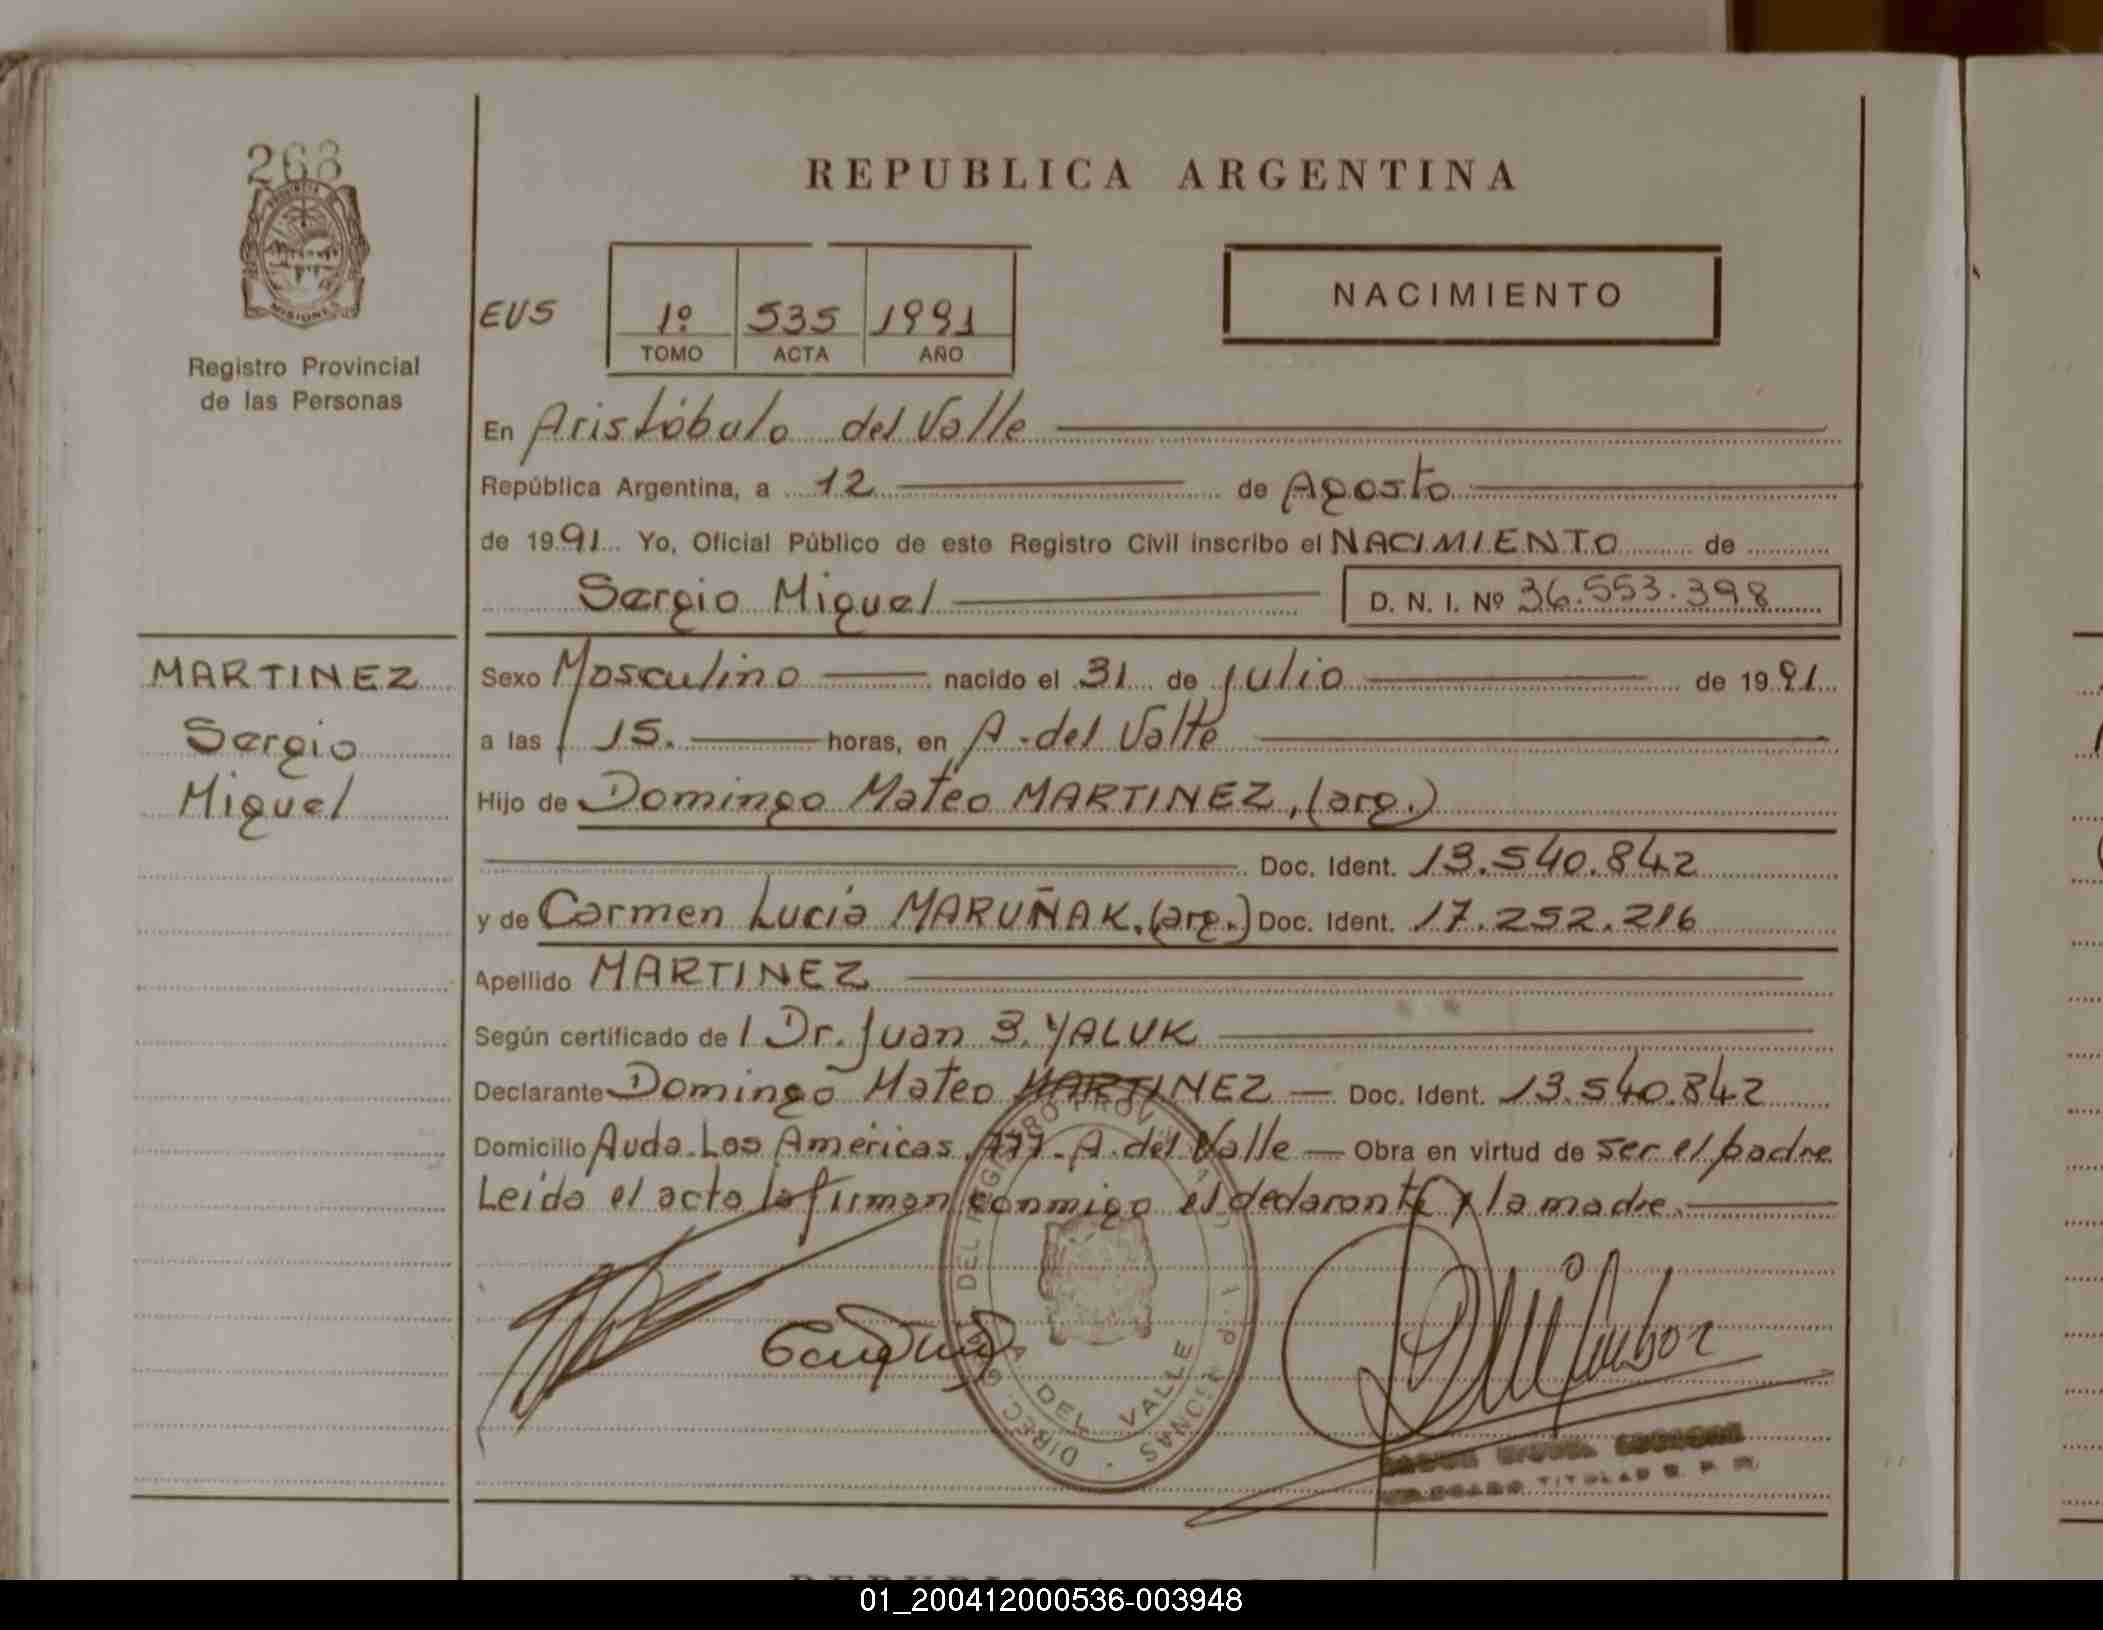 268
PROVINCIA
MISIONES
Registro Provincial
de las Personas
REPUBLICA ARGENTINA
NACIMIENTO
EUS
1º 535 1991
TOMO ACTA AÑO
En Aristóbulo del Valle
República Argentina, a 12 de Agosto
de 1991 Yo, Oficial Público de este Registro Civil inscribo el NACIMIENTO de
Sergio Miguel D. N. I. Nº 36.553.398
MARTINEZ
Sergio
Miguel
Sexo Masculino nacido el 31 de julio de 1991
a las 15. horas, en A. del Valle
Hijo de Domingo Mateo MARTINEZ, (arg.)
Doc. Ident. 13.540.842
y de Carmen Lucia MARUÑAK, (arg.) Doc. Ident. 17.252.216
Apellido MARTINEZ
Según certificado de l Dr. Juan B. YALUK
Declarante Domingo Mateo MARTINEZ — Doc. Ident. 13.540.842
Domicilio Avda. Las Américas 777 - A. del Valle — Obra en virtud de ser el padre
Leída el acta la firman conmigo el declarante y la madre.
DEL REGISTRO PROV
DEL VALLE
DIREC. MISIONES
TITULAR R. P. P.
01_200412000536-003948